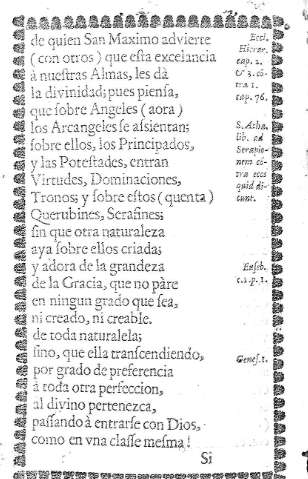 de quien San Maximo advierte
(con otros) que esta excelancia
à nuestras Almas, les dà
la divinidad; pues piensa,
que sobre Angeles (aora)
los Arcangeles se assientan;
sobre ellos, los Principados,
y las Potestades, entran
Virtudes, Dominaciones,
Tronos; y sobre estos (quenta)
Querubines, Serafines;
sin que otra naturaleza
aya sobre ellos criada;
y adora de la grandeza
de la Gracia, que no pàre
en ningun grado que sea,
ni creado, ni creable.
de toda naturalela;
sino, que ella transcendiendo,
por grado de preferencia
à toda otra perfeccion,
al divino pertenezca,
passando à entrarse con Dios,
como en vna classe mesma!
Si
Eccl.
Hierar.
cap. 2.
& 3. cō
tra 1.
cap. 76.
S. Atha.
lib. ad
Serapio-
nem cō-
tra eos
quid di-
cunt.
Euseb.
c.1.p.1.
Genes.1.